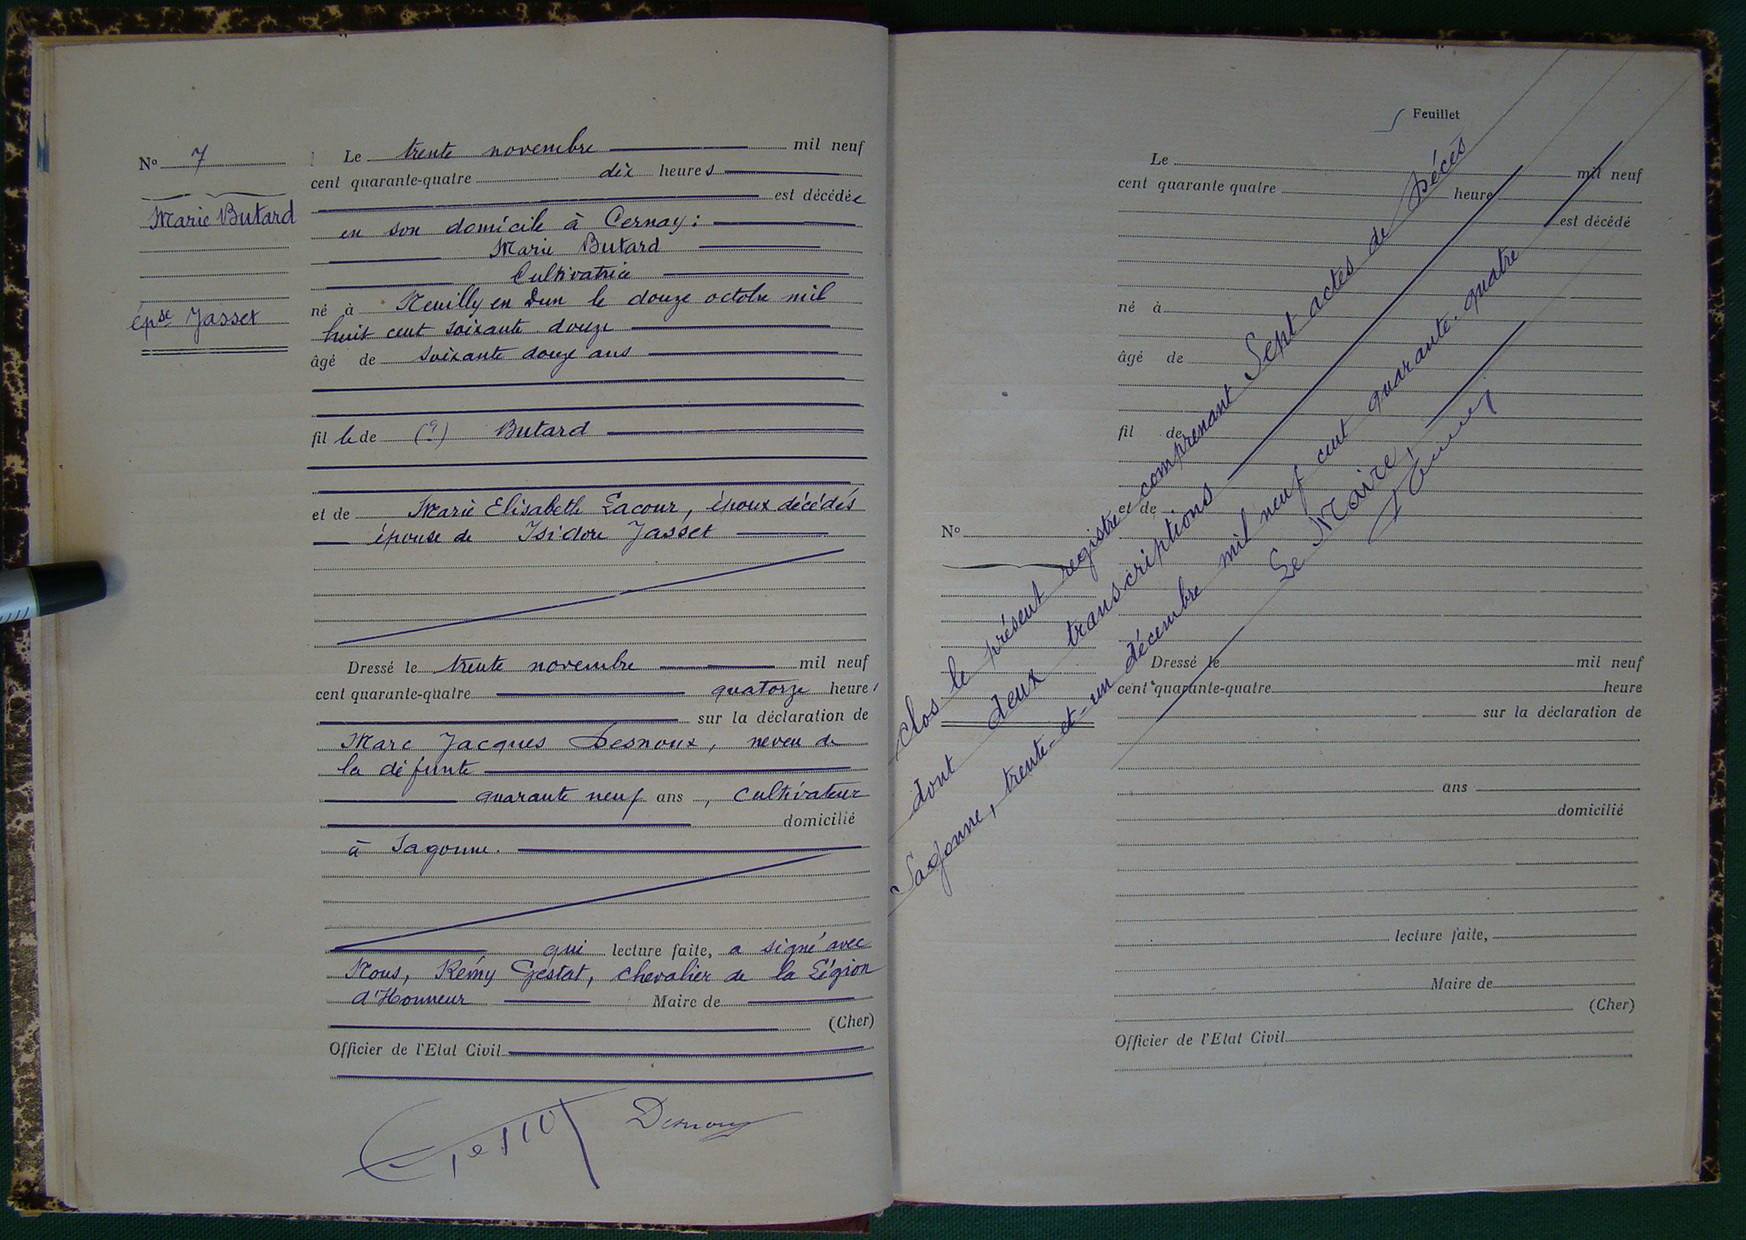 N° 7
Marie Butard
épse Jasset
Le trente novembre mil neuf
cent quarante-quatre dix heures
est décédée
en son domicile à Cernay :
Marie Butard
Cultivatrice
né à Neuilly en Dun le douze octobre mil
huit cent soixante douze
âgé de soixante douze ans
fille de (?) Butard
et de Marie Elisabeth Lacour, époux décédés
épouse de Isidore Jasset
Dressé le trente novembre mil neuf
cent quarante-quatre quatorze heures
sur la déclaration de
Marc Jacques Desnoux, neveu de
la défunte
quarante neuf ans, cultivateur
domicilié
à Sagonne.
qui lecture faite, a signé avec
Nous, Rémy Gestat, chevalier de la Légion
d'Honneur Maire de
(Cher)
Officier de l'Etat Civil
Gestat Desnoux
Feuillet
Le mil neuf
cent quarante quatre heure
est décédé
né à
âgé de
fil de
et de
N°
Dressé le mil neuf
cent quarante-quatre heure
sur la déclaration de
ans
domicilié
lecture faite,
Maire de
(Cher)
Officier de l'Etat Civil
Clos le présent registre comprenant Sept actes de Décès
dont deux transcriptions
Sagonne, trente-et-un décembre mil neuf cent quarante-quatre
Le Maire,